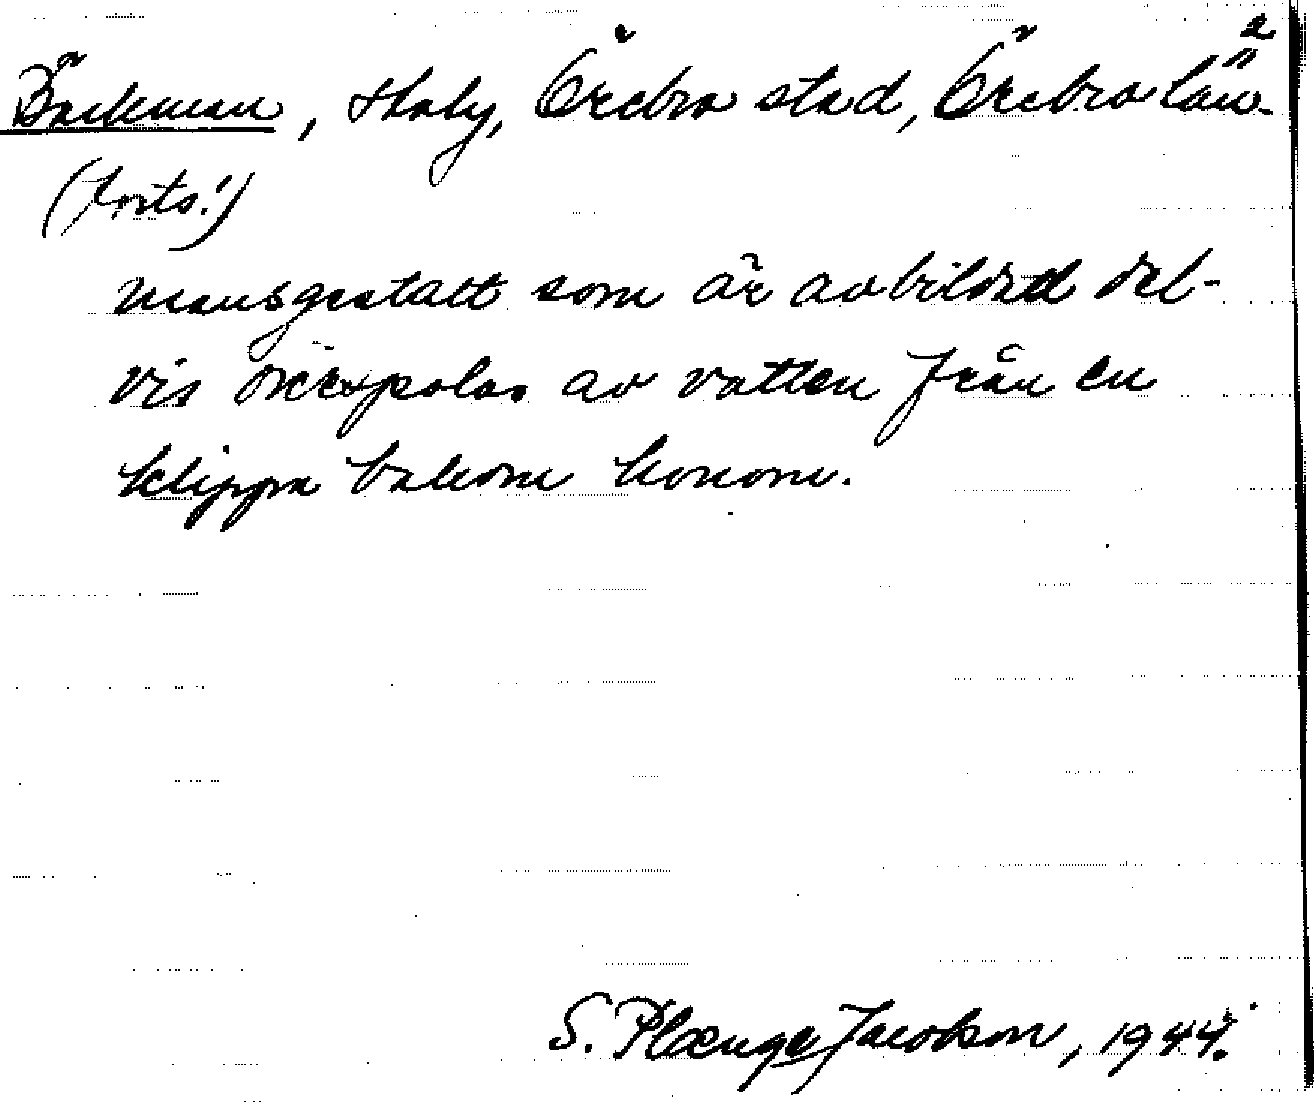 2
Bäckman, Thaly, Örebro stad, Örebro län.
(forts.)
mansgestalt som är avbildad del-
vis överspolas av vatten från en
klippa bakom honom.
S. Plænge Jacobson, 1944.